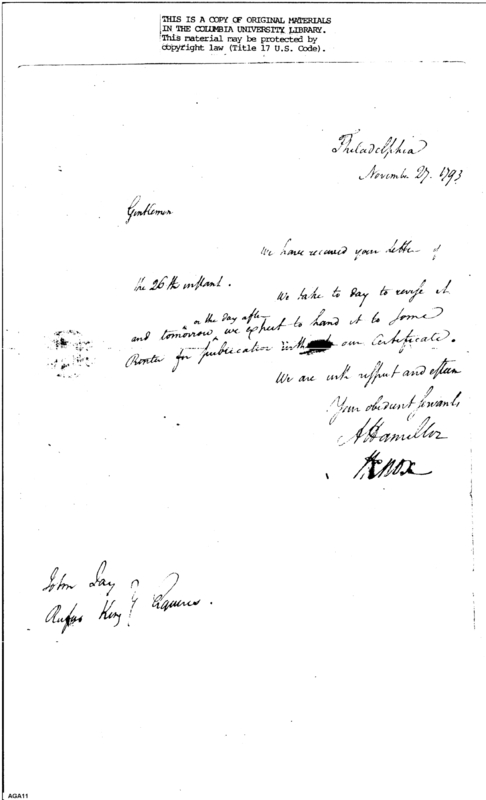 THIS IS A COPY OF ORIGINAL MATERIALS
IN THE COLUMBIA UNIVERSITY LIBRARY.
This material may be protected by
copyright law (Title 17 U.S. Code).
Philadelphia
Novembr. 27. 1793
Gentlemen
We have received your letter of
the 26th instant.
We take to day to revise it
or the day after
and tomorrow ^ we expect to hand it to some
Printer for publication with our Certificate.
We are with respect and esteem
Your obedient servants
A Hamilton
H Knox
John Jay
Rufus King } Esquires.
AGA11